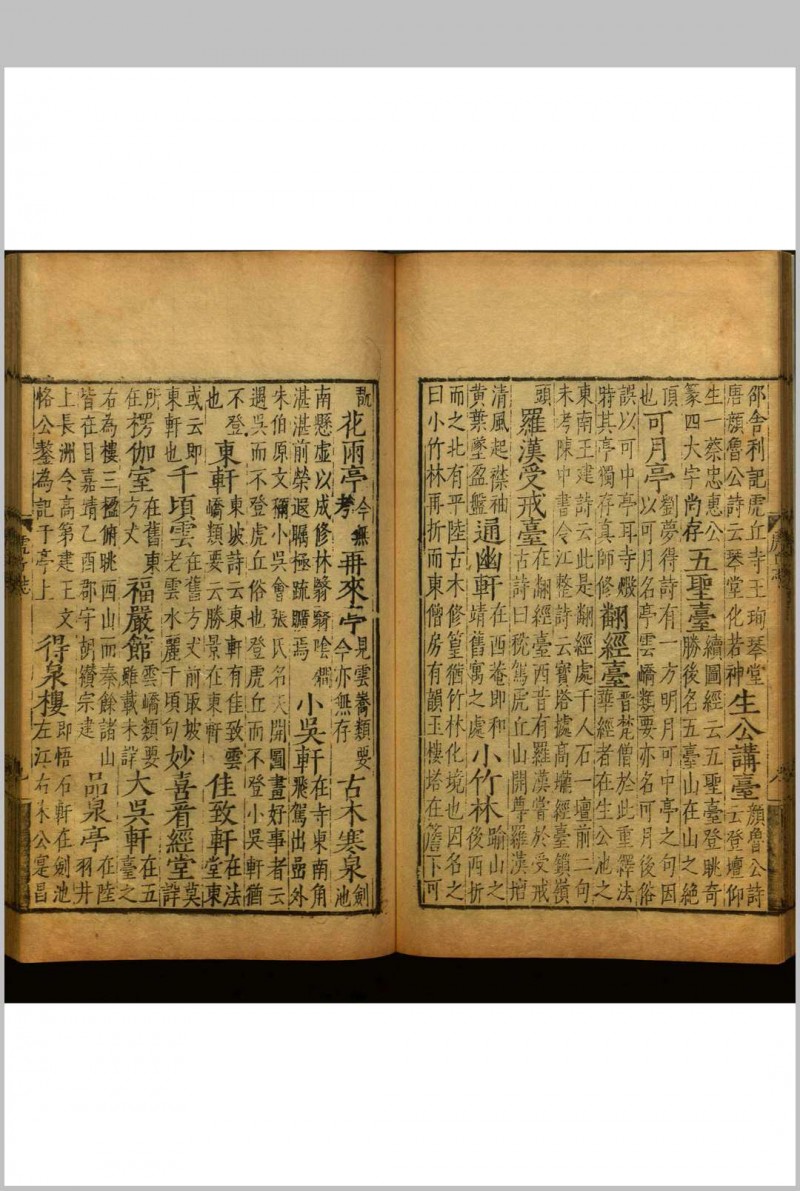 邵舍利記虎丘寺王珣琴堂
唐顏魯公詩云琴堂化若神
生公講臺
顏魯公詩
云登壇仰
生一蔡忠惠公
篆四大字尚存
五聖臺
續圖經云五聖臺登眺奇
勝後名五臺山在山之絕
頂
也
可月亭
劉夢得詩有一方明月可中亭之句因
以可月名亭雲嶠類要亦名可月後俗
誤以可中亭耳寺燬
特其亭獨存真師修
翻經臺
晉梵僧於此重譯法
華經者在生公池之
東南王建詩云此是翻經處千人石一壇前二句
未考陳中書令江整詩云寶塔據高壠經臺鎖嶺
頭
羅漢受戒臺
在翻經臺西昔有羅漢嘗於受戒
古詩曰稅駕虎丘山開尊羅漢壇
清風起襟袖
黃葉墜盈盤
通幽軒
在西菴即和
靖舊寓之處
小竹林
踰山之
後西折
而之北有平陸古木修篁猶竹林化境也因名之
曰小竹林再折而東僧房有韻玉樓塔在簷下可
翫
花雨亭
今無
考
再來亭
見雲嶠類要
今亦無存
古木寒泉
劍
池
南懸虛以成修林翳翳唫
湛湛前榮遐矚極疏曠焉
小吳軒
在寺東南角
飛駕出嵒外
朱伯原文禰小吳會張氏名天開圖畫好事者云
過吳而不登虎丘俗也登虎丘而不登小吳軒猶
不登
也
東軒
東坡詩云東軒有佳致雲
嶠類要云勝景在東軒
佳致軒
在法
堂東
或云即
東軒也
千頃雲
在舊方丈前取坡
老雲水麗千頃句
妙喜看經堂
莫
詳
所
在
楞伽室
在舊東
方丈
福嚴館
雲嶠類要
雖載未詳
大吳軒
在五
臺之
右為樓三楹俯眺西山而秦餘諸山
皆在目嘉靖乙酉郡守胡纘宗建
品泉亭
在陸
羽井
上長洲令高第建王文
恪公鏊為記于亭上
得泉樓
即悟石軒在劍池
左江右朱公寔昌